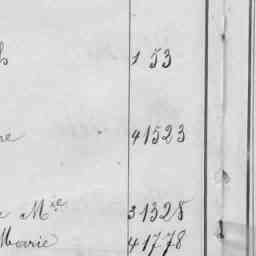 1 53
41523
Mre 31328
Marie 41778